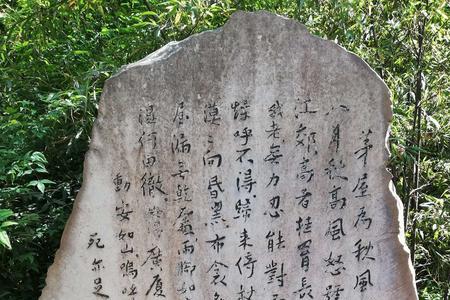 茅屋為秋風
八月秋高風怒號
江郊高者挂罥長
我老無力忍能對
燥呼不得歸來倚杖
漠向昏黑布衾
屋漏無乾處雨脚如
濕何由徹安得廣廈
動安如山嗚呼
死亦足